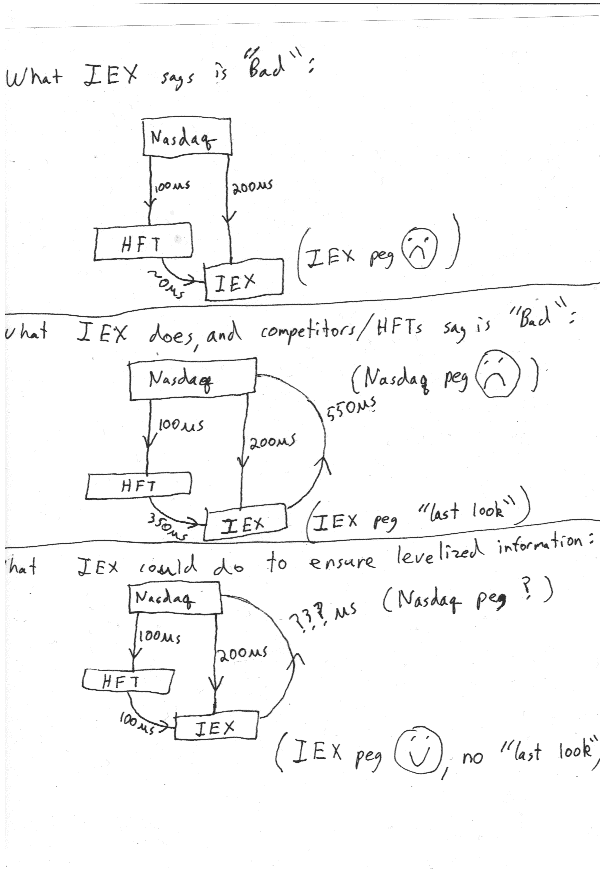 What IEX says is "Bad":
Nasdaq
100µs
200µs
HFT
20µs
IEX
(IEX peg )
what IEX does, and competitors/HFTs say is "Bad":
Nasdaq
(Nasdaq peg )
550µs
100µs
200µs
HFT
350µs
IEX
(IEX peg "last look")
hat IEX could do to ensure levelized information:
Nasdaq
???µs
(Nasdaq peg ?)
100µs
200µs
HFT
100µs
IEX
(IEX peg , no "last look"